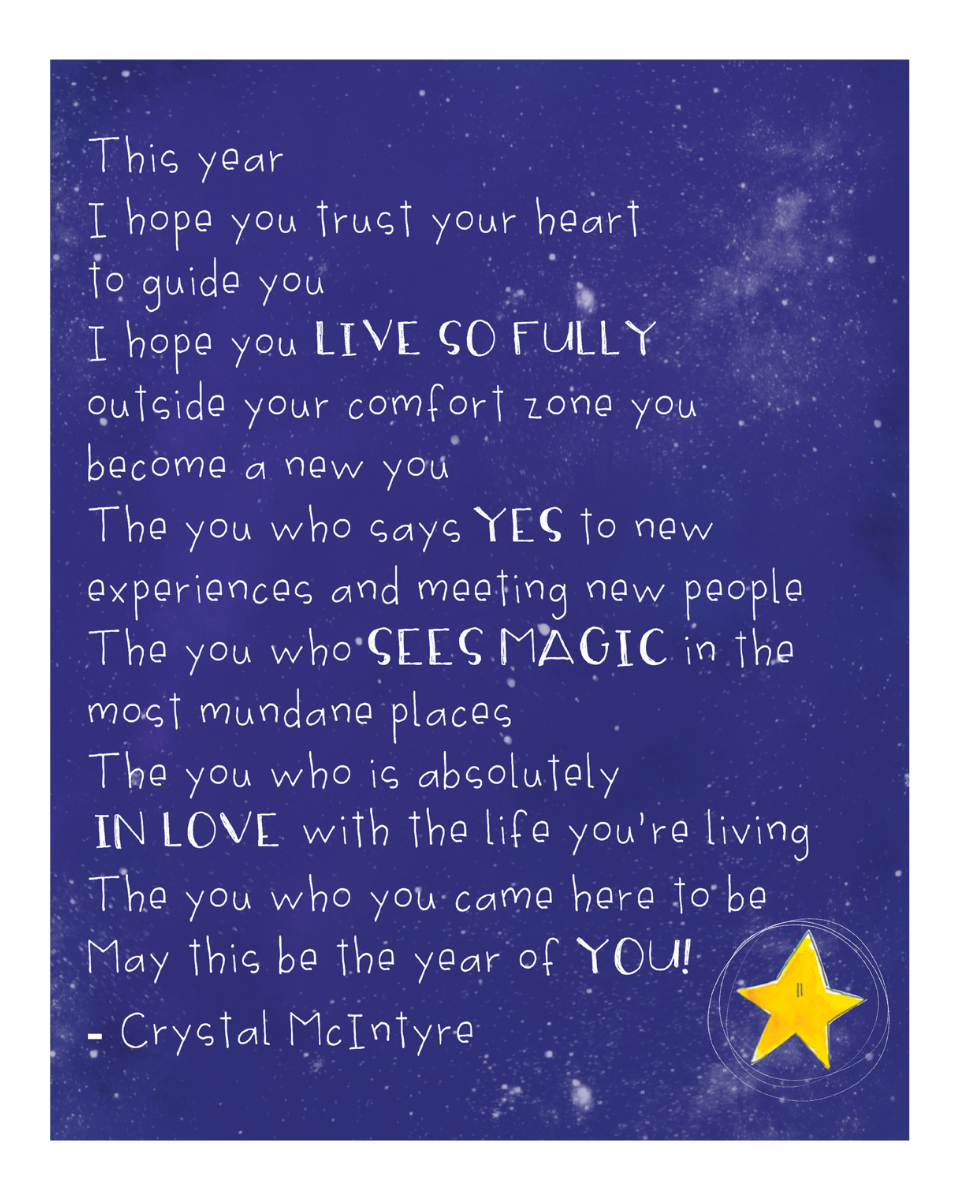 This year
I hope you trust your heart
to guide you
I hope you LIVE SO FULLY
outside your comfort zone you
become a new you
The you who says YES to new
experiences and meeting new people
The you who SEES MAGIC in the
most mundane places
The you who is absolutely
IN LOVE with the life you're living
The you who you came here to be
May this be the year of YOU!
- Crystal McIntyre